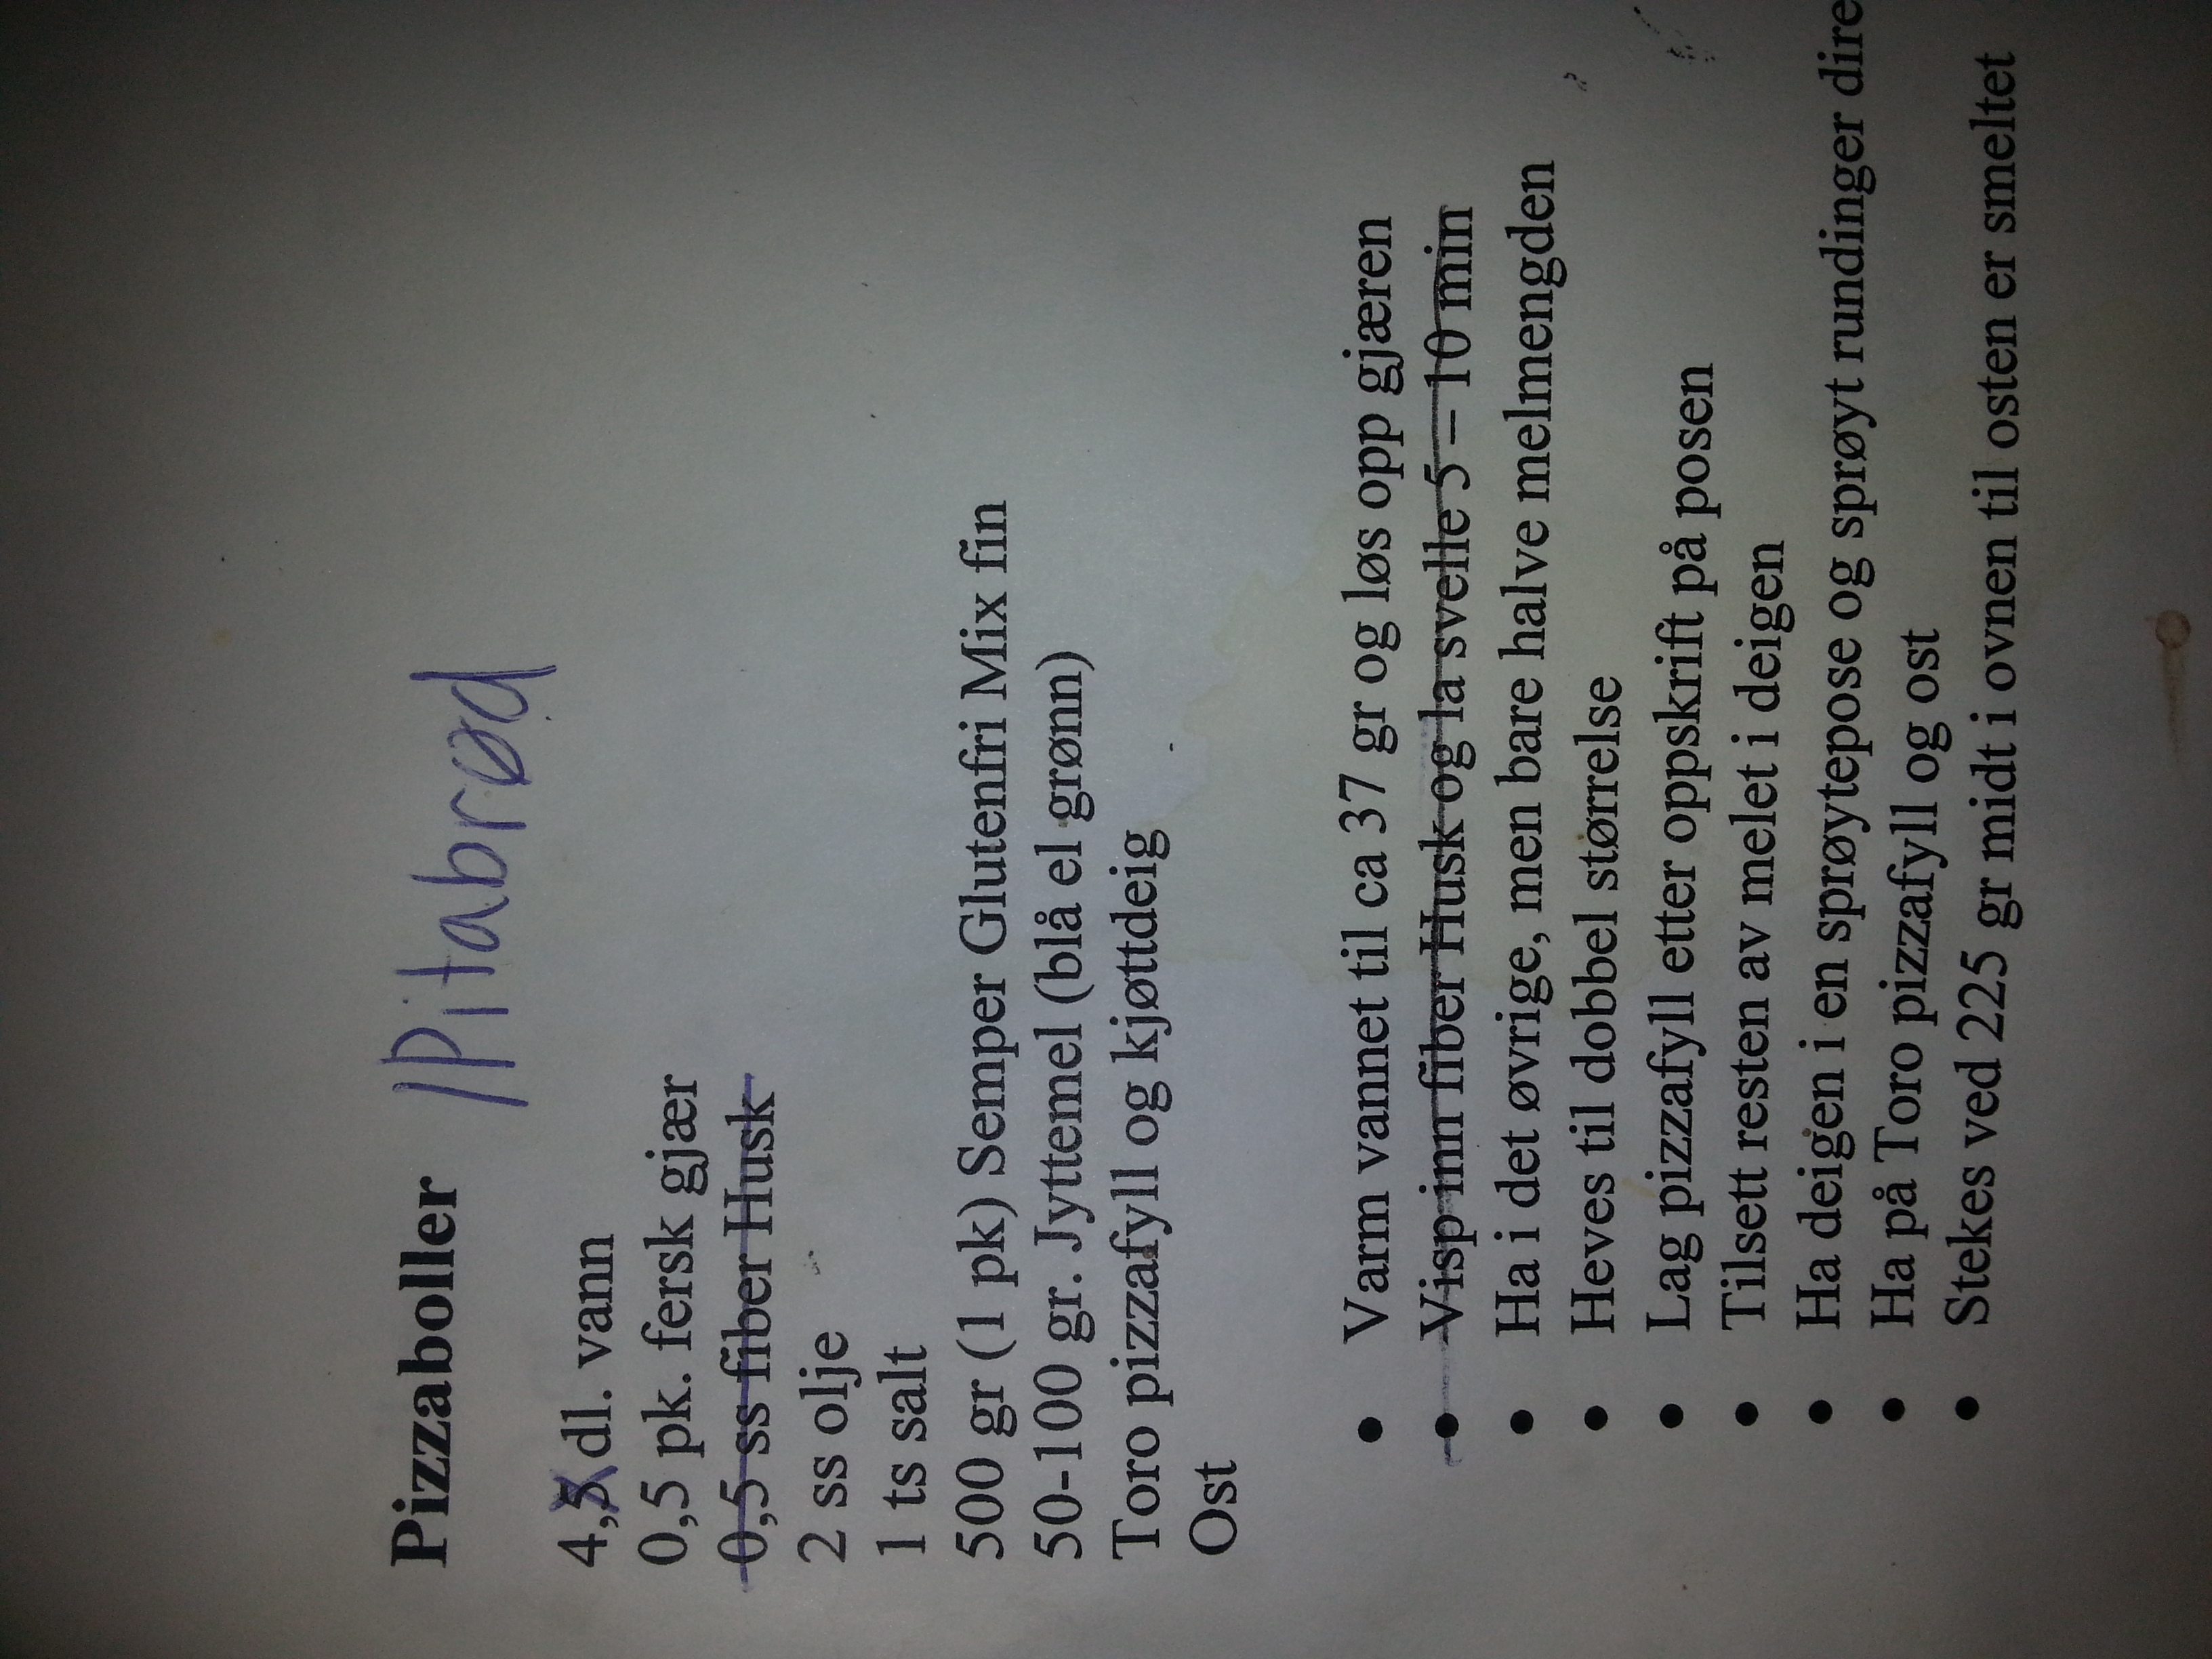 Pizzaboller /Pitabrød
4,5 dl. vann
0,5 pk. fersk gjær
0,5 ss fiber Husk
2 ss olje
1 ts salt
500 gr (1 pk) Semper Glutenfri Mix fin
50-100 gr. Jyttemel (blå el grønn)
Toro pizzafyll og kjøttdeig
Ost
• Varm vannet til ca 37 gr og løs opp gjæren
• Visp inn fiber Husk og la svelle 5 – 10 min
• Ha i det øvrige, men bare halve melmengden
• Heves til dobbel størrelse
• Lag pizzafyll etter oppskrift på posen
• Tilsett resten av melet i deigen
• Ha deigen i en sprøytepose og sprøyt rundinger dire
• Ha på Toro pizzafyll og ost
• Stekes ved 225 gr midt i ovnen til osten er smeltet